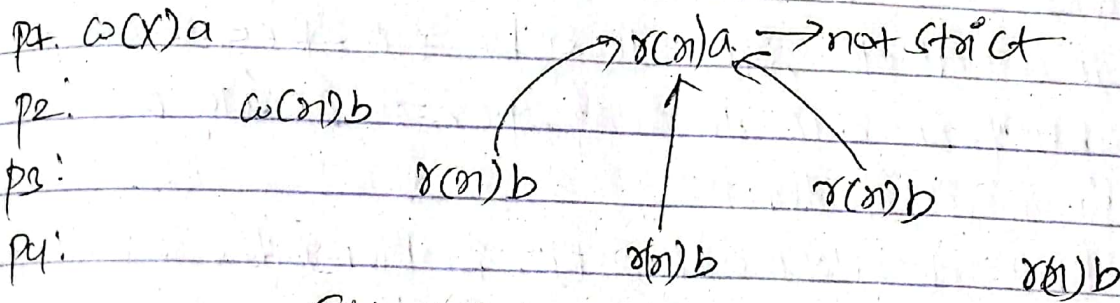 P1. w(x)a r(x)a. → not strict
P2. w(x)b
P3: r(x)b r(x)b
P4: r(x)b r(x)b